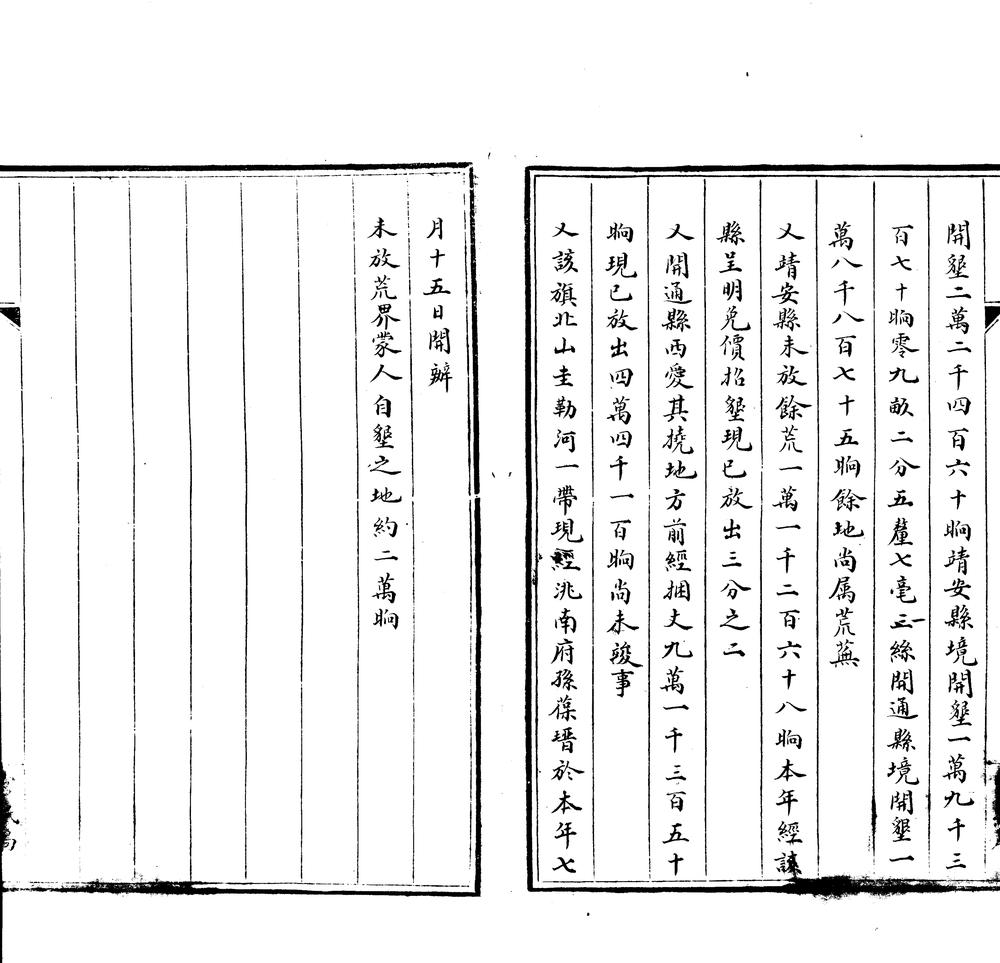 開墾二萬二千四百六十晌靖安縣境開墾一萬九千三
百七十晌零九畝二分五釐七毫三絲開通縣境開墾一
萬八千八百七十五晌餘地尚属荒蕪
又靖安縣未放餘荒一萬一千二百六十八晌本年經該
縣呈明免價招墾現已放出三分之二
又開通縣西愛其撓地方前經捆丈九萬一千三百五十
晌現已放出四萬四千一百晌尚未竣事
又該旗北山圭勒河一帶現經洮南府孫葆瑨於本年七
月十五日開辦
未放荒界蒙人自墾之地約二萬晌